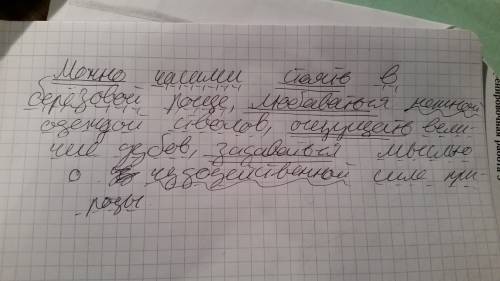 Можно часами стоять в
берёзовой роще, любаваться нежной
одеждой стволов, ощущать вели-
чие дубов, задаваться мыслью
о чудодейственной силе при-
роды